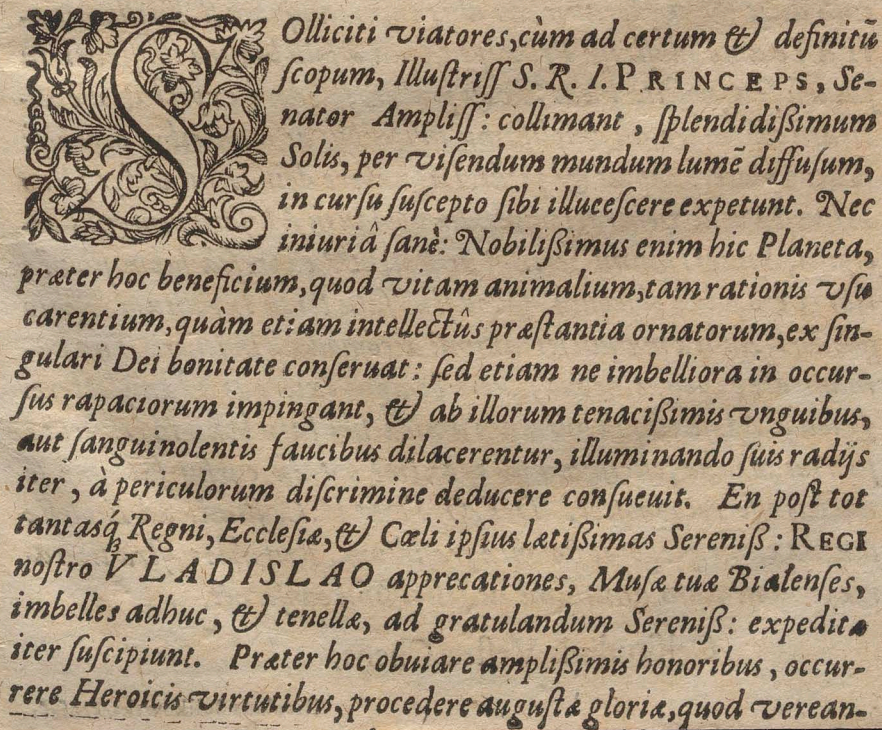 SOlliciti viatores, cùm ad certum & definitũ
ſcopum, Illuſtriſſ S. R. I. PRINCEPS, Se-
nator Ampliſſ: collimant, ſplendidißimum
Solis, per viſendum mundum lumẽ diffuſum,
in curſu ſuſcepto ſibi illuceſcere expetunt. Nec
iniuriâ ſanè: Nobilißimus enim hic Planeta,
præter hoc beneficium, quod vitam animalium, tam rationis vſu
carentium, quàm etiam intellectûs præſtantia ornatorum, ex ſin-
gulari Dei bonitate conſeruat: ſed etiam ne imbelliora in occur-
ſus rapaciorum impingant, & ab illorum tenacißimis vnguibus,
aut ſanguinolentis faucibus dilacerentur, illuminando ſuis radijs
iter, à periculorum diſcrimine deducere conſueuit. En poſt tot
tantasq́ꝫ Regni, Eccleſiæ, & Cœli ipſius lætißimas Sereniß: REGI
noſtro VLADISLAO apprecationes, Muſæ tuæ Bialenſes,
imbelles adhuc, & tenellæ, ad gratulandum Sereniß: expedita
iter ſuſcipiunt. Præter hoc obuiare amplißimis honoribus, occur-
rere Heroicis virtutibus, procedere auguſtæ gloriæ, quod verean-